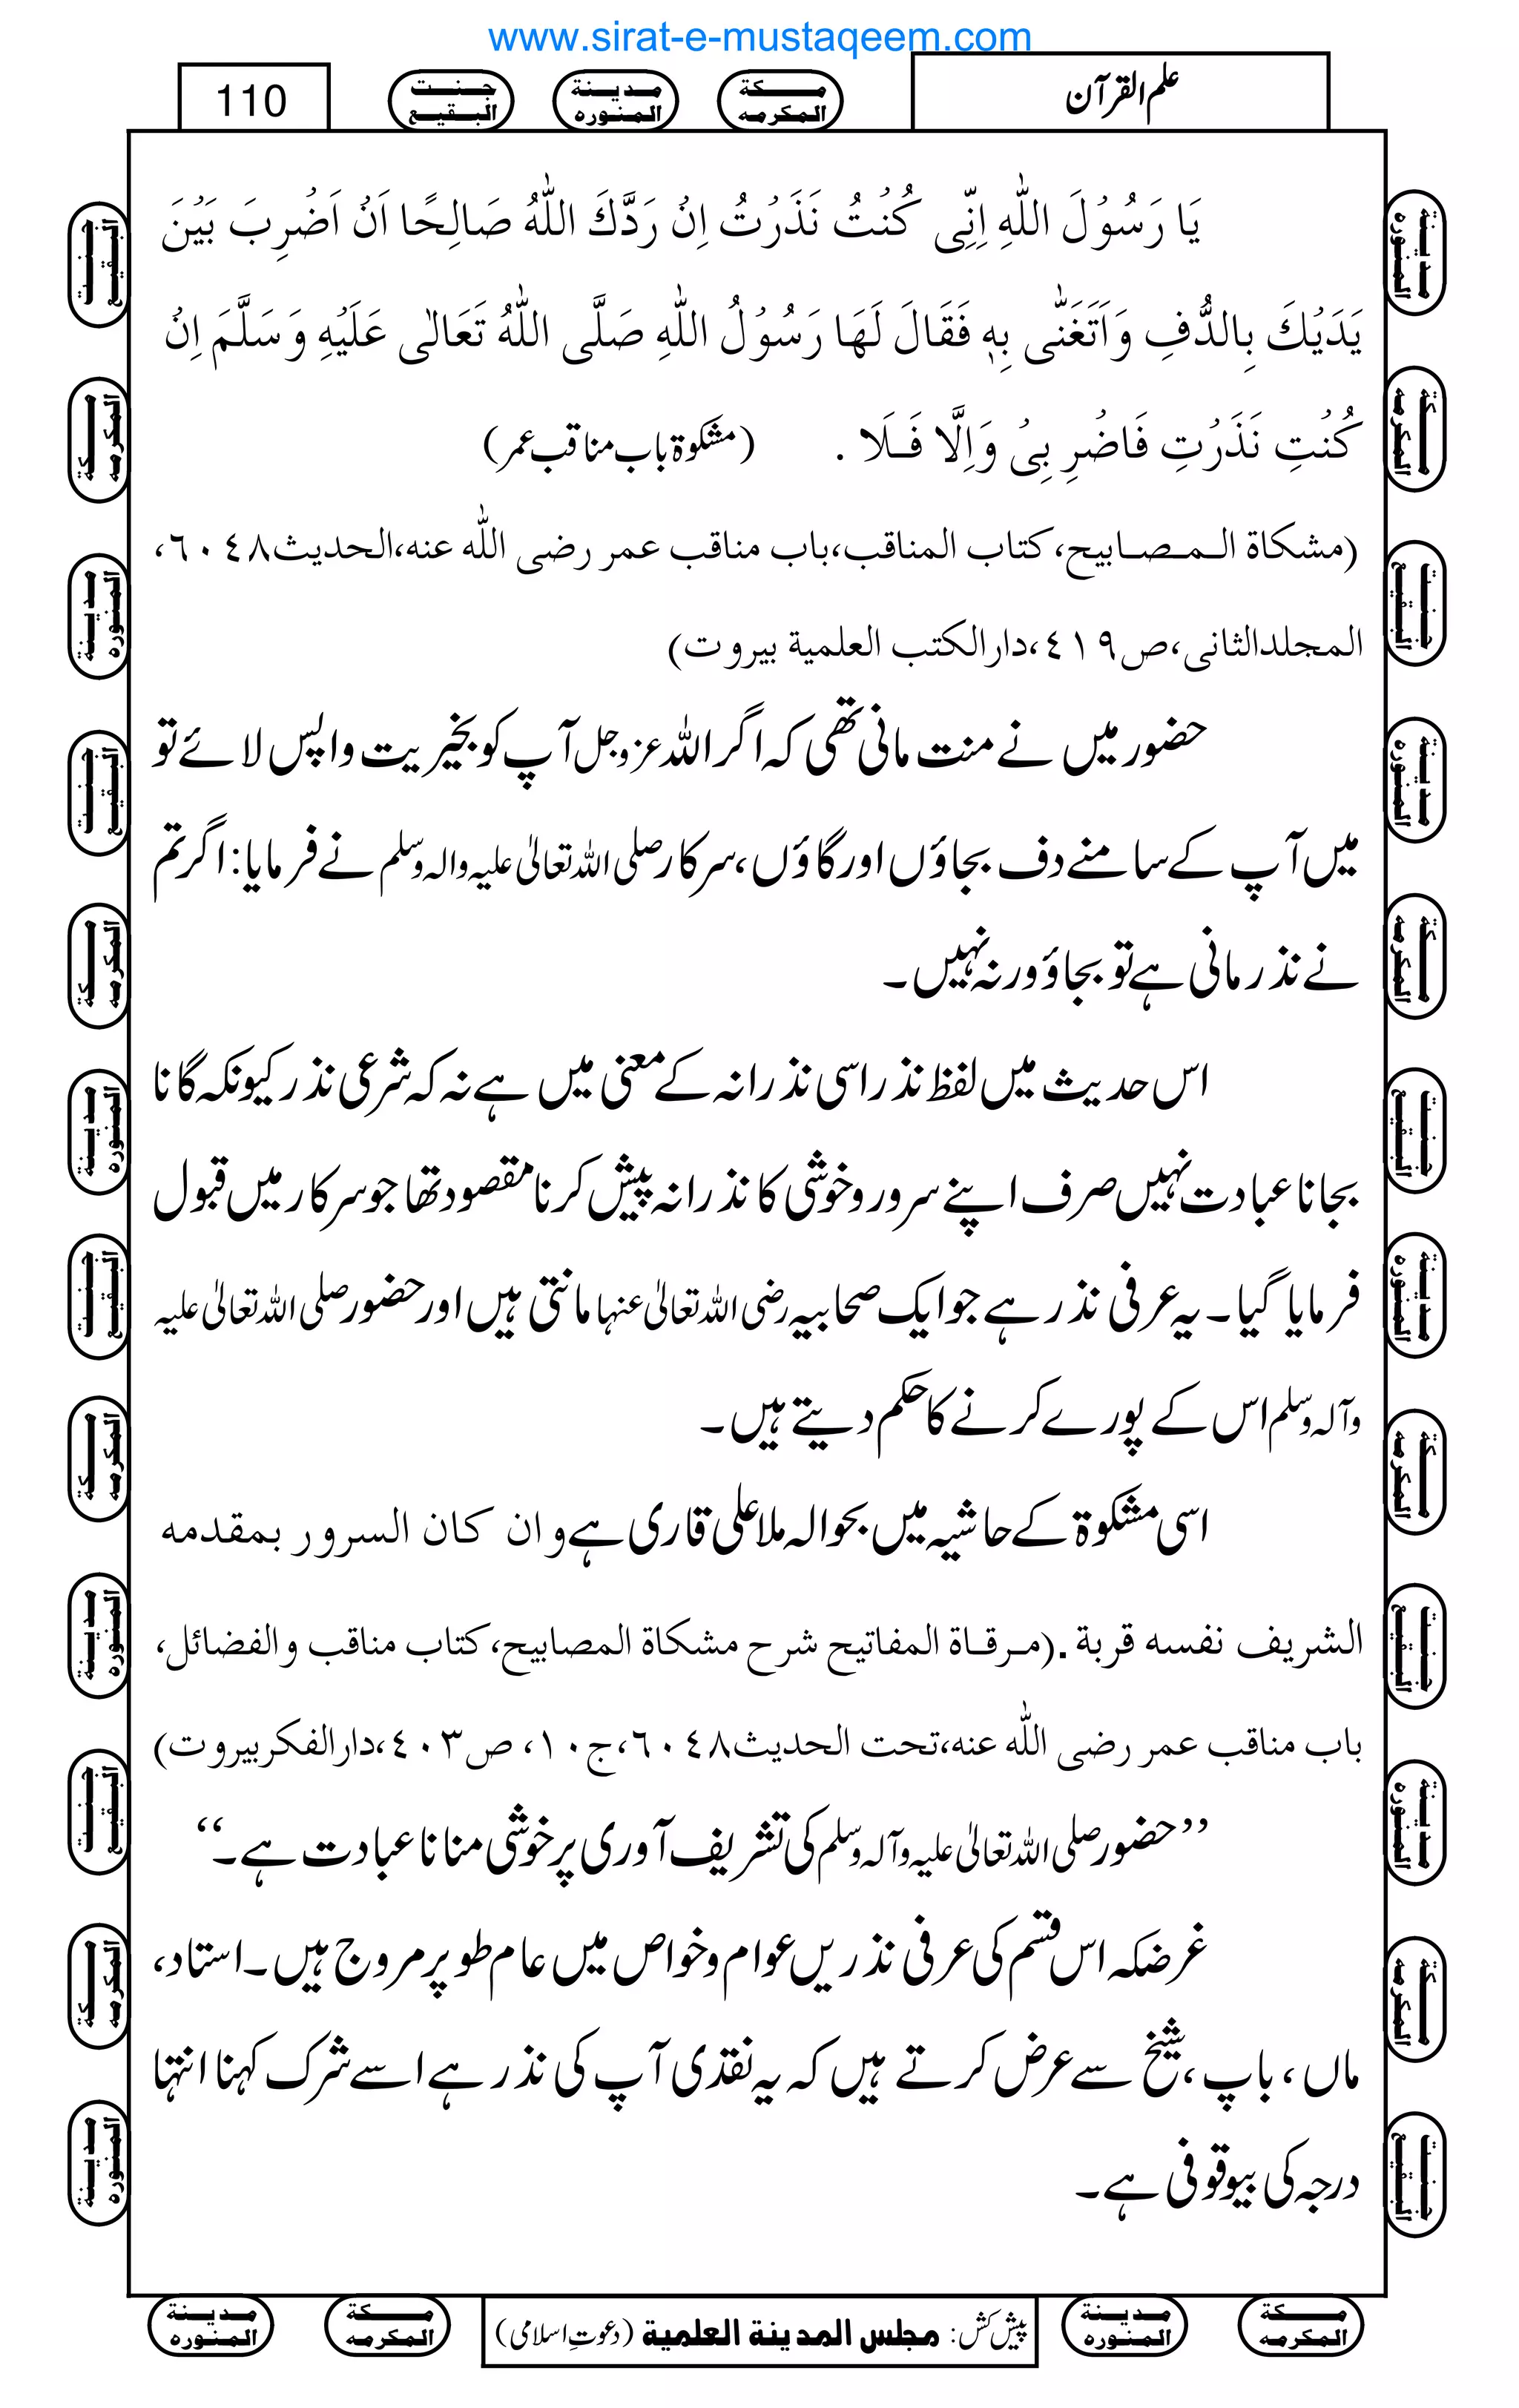 www.sirat-e-mustaqeem.com
علم القرآن
مكة المكرمه
مدينة المنوره
جنت البقيع
110
يَا رَسُوْلَ اللّٰهِ اِنِّى كُنْتُ نَذَرْتُ اِنْ رَدَّكَ اللّٰهُ صَالِحًا اَنْ اَضْرِبَ بَيْنَ
يَدَيْكَ بِالدُّفِ وَاَتَغَنّٰى بِهٖ فَقَالَ لَهَا رَسُوْلُ اللّٰهِ صَلَّى اللّٰهُ تَعَالٰى عَلَيْهِ وَسَلَّمَ اِنْ
كُنْتِ نَذَرْتِ فَاضْرِبِىْ وَاِلَّا فَلَا . (مشکوۃ باب مناقب عمر)
(مشكاة المصابيح، كتاب المناقب،باب مناقب عمر رضى اللّٰه عنه،الحديث٦٠٤٨،
المجلدالثانى،ص٤١٩،دارالكتب العلمية بيروت)
حضور میں نے منت مانی تھی کہ اگر اللہ عزوجل آپ کو بخیریت واپس لائے تو
میں آپ کے سامنے دف بجاؤں اور گاؤں ، سرکار صلی اللہ تعالیٰ علیہ والہ وسلم نے فرمایا: اگر تم
نے نذر مانی ہے تو بجاؤ ورنہ نہیں ۔
اس حدیث میں لفظ نذر اسی نذرانہ کے معنی میں ہے نہ کہ شرعی نذر کیونکہ گانا
بجانا عبادت نہیں صرف اپنے سرور و خوشی کا نذرانہ پیش کرنا مقصود تھا جو سرکار میں قبول
فرمایا گیا۔ یہ عرفی نذر ہے جو ایک صحابیہ رضی اللہ تعالیٰ عنہا مانتی ہیں اور حضور صلی اللہ تعالیٰ علیہ
وآلہ وسلم اس کے پورے کرنے کا حکم دیتے ہیں ۔
اسی مشکوۃ کے حاشیہ میں بحوالہ ملا علی قاری ہے وان كان السرور بمقدمه
الشريف نفسه قربة .(مرقاة المفاتيح شرح مشكاة المصابيح،كتاب مناقب والفضائل،
باب مناقب عمر رضى اللّٰه عنه،تحت الحديث٦٠٤٨،ج١٠، ص٤٠٣،دارالفكربيروت)
’’حضور صلی اللہ تعالیٰ علیہ وآلہ وسلم کی تشریف آوری پر خوشی منانا عبادت ہے۔‘‘
غرضکہ اس قسم کی عرفی نذریں عوام وخواص میں عام طور پر مروج ہیں ۔ استاد،
ماں ، باپ، شیخ سے عرض کرتے ہیں کہ یہ نقدی آپ کی نذر ہے اسے شرک کہنا انتہا
درجہ کی بیوقوفی ہے ۔
پیش کش: مجلس المدينة العلمية (دعوتِ اسلامی)